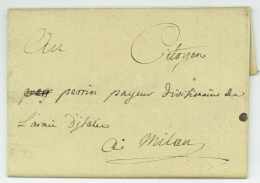 Au Citoyen
perrin payeur divisionaire de
L'armée d'italie
à Milan